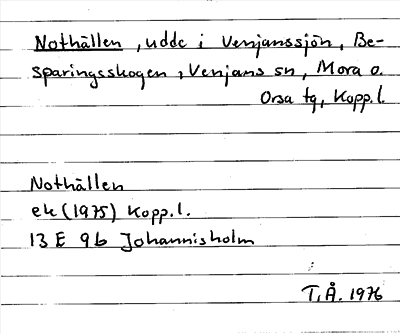 Nothällen, udde i Venjanssjön, Be-
sparingsskogen, Venjans sn, Mora o.
Orsa tg, Kopp.l.
Nothällen
ek (1975) Kopp.l.
13 E 9b Johannisholm
T.Å. 1976